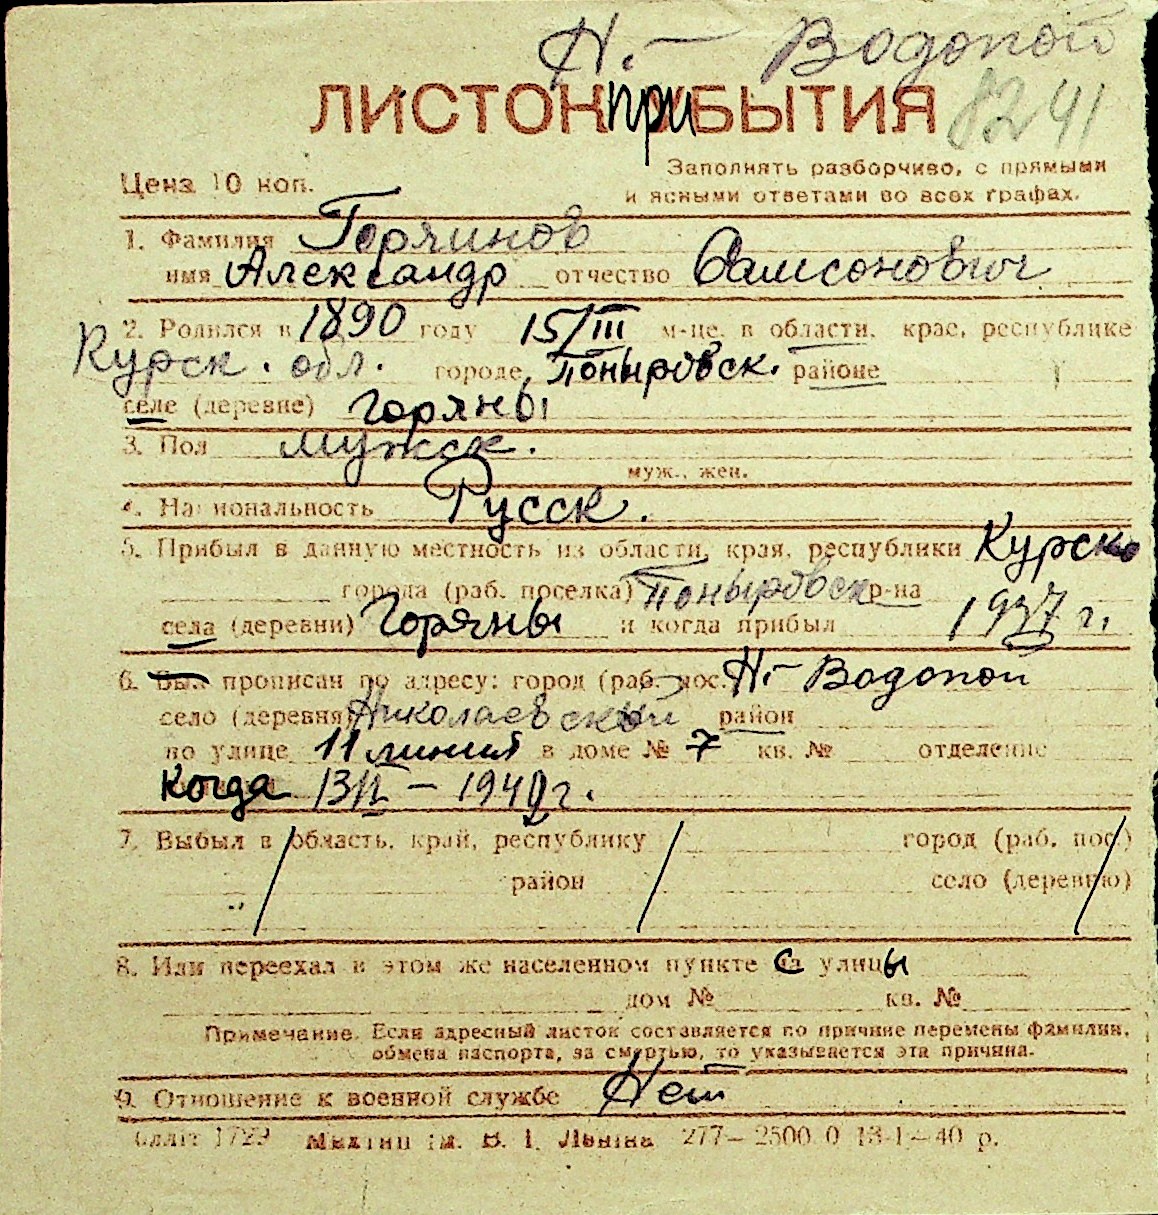 Н.- Водопой
ЛИСТОК приБЫТИЯ 8241
Цена 10 коп.
Заполнять разборчиво, с прямыми
и ясными ответами во всех графах.
1. Фамилия Горяинов
имя Александр отчество Самсонович
2. Родился в 1890 году 15/III м-це, в области, крае, республике
Курск. обл. городе, Поныровск. районе
селе (деревне) Горяны
3. Пол мужск.
муж., жен.
4. Национальность Русск.
5. Прибыл в данную местность из области, края, республики Курско
города (раб. поселка) Поныровск р-на
села (деревни) Горяны и когда прибыл 1937 г.
6. Был прописан по адресу: город (раб. пос. Н.- Водопой
село (деревня) Николаевский район
по улице 11 линия в доме № 7 кв. № отделение
Когда 13/II – 1940 г.
7. Выбыл в область, край, республику город (раб. пос.)
район село (деревню)
8. Или переехал в этом же населенном пункте с улицы
дом № кв. №
Примечание. Если адресный листок составляется по причине перемены фамилии,
обмена паспорта, за смертью, то указывается эта причина.
9. Отношение к военной службе Нет
1729 ім. В. І. Леніна 277—2500.0 13-I—40 р.